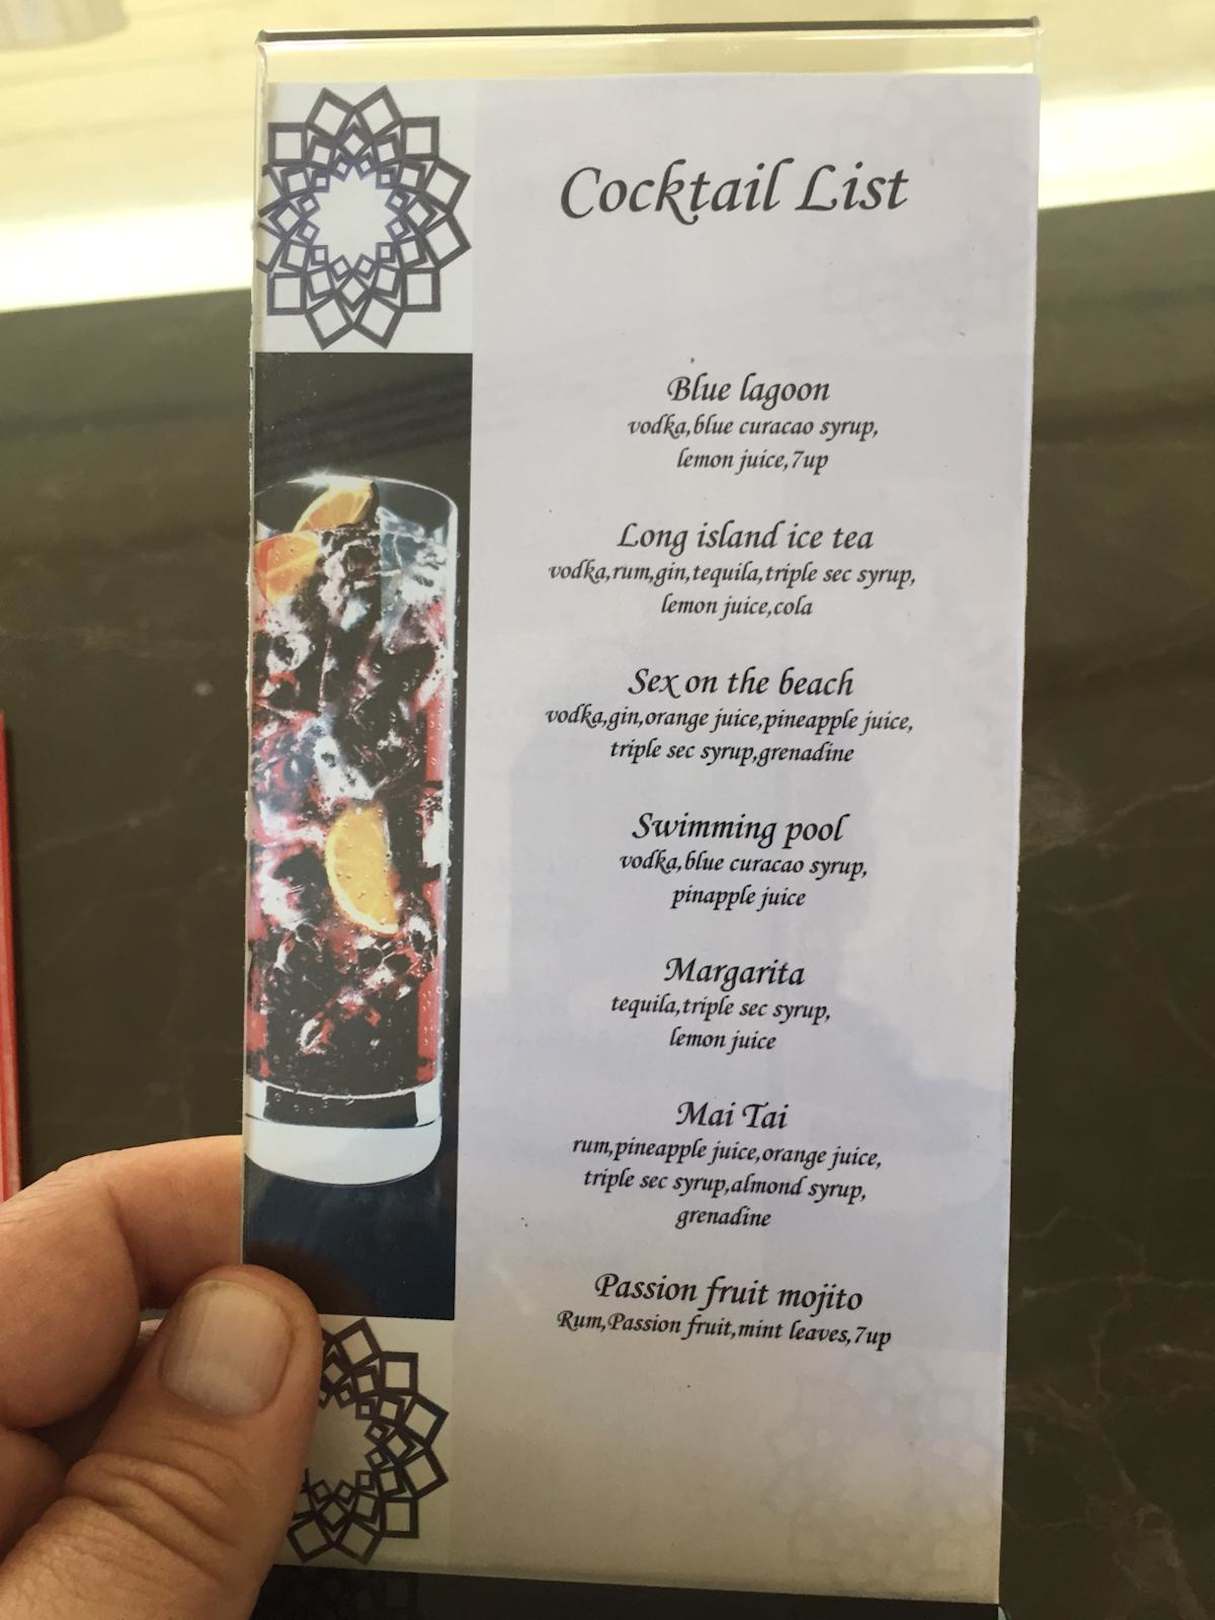 Cocktail List
Blue lagoon
vodka,blue curacao syrup,
lemon juice,7up
Long island ice tea
vodka,rum,gin,tequila,triple sec syrup,
lemon juice,cola
Sex on the beach
vodka,gin,orange juice,pineapple juice,
triple sec syrup,grenadine
Swimming pool
vodka,blue curacao syrup,
pinapple juice
Margarita
tequila,triple sec syrup,
lemon juice
Mai Tai
rum,pineapple juice,orange juice,
triple sec syrup,almond syrup,
grenadine
Passion fruit mojito
Rum,Passion fruit,mint leaves,7up